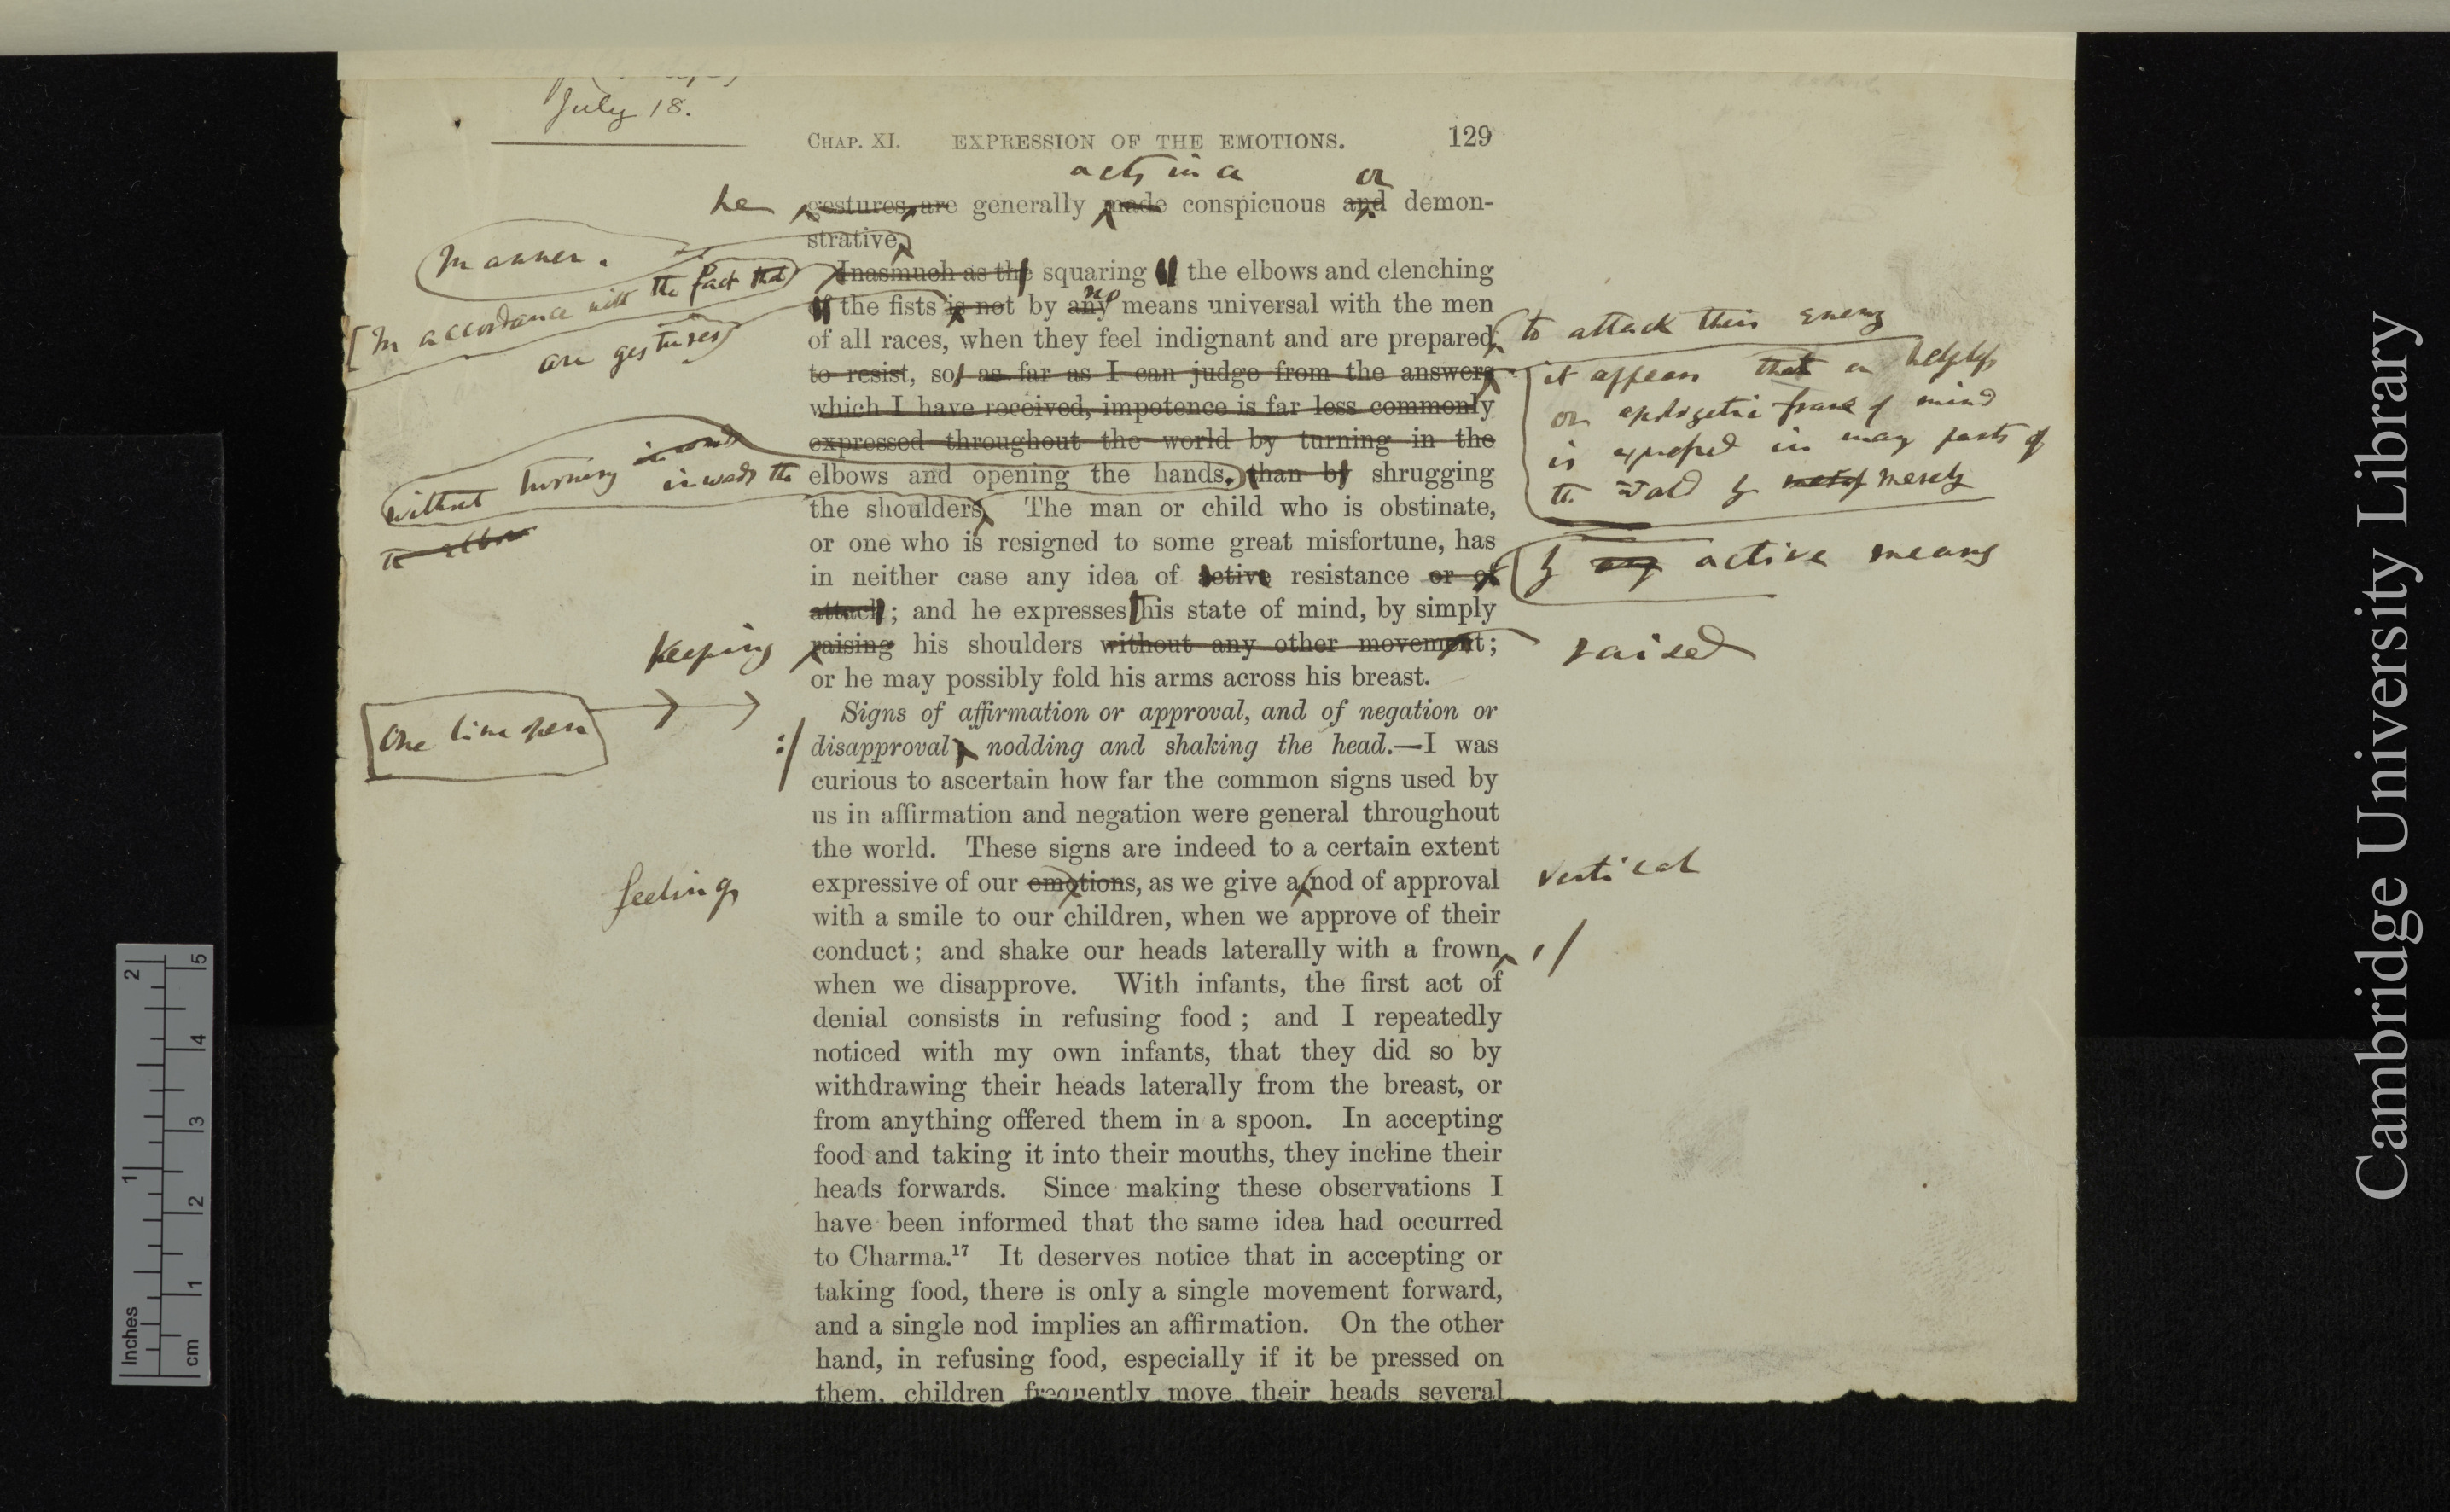 July 18.
CHAP. XI. EXPRESSION OF THE EMOTIONS. 129
acts in a or
he gestures, are generally made conspicuous and demon-
strative.
manner.
Inasmuch as the squaring of the elbows and clenching
[In accordance with the fact that
no
of the fists is not by any means universal with the men
are gestures
of all races, when they feel indignant and are prepared
to attack their enemy
to resist, so, as far as I can judge from the answers
it appears that a helpless
which I have received, impotence is far less commonly
or apologetic frame of mind
expressed throughout the world by turning in the
is expressed in many parts of
without turning inwards the
elbows and opening the hands, than by shrugging
the world by merely
the shoulders. The man or child who is obstinate,
the elbow
or one who is resigned to some great misfortune, has
in neither case any idea of active resistance or of
by active means
attack; and he expresses this state of mind, by simply
keeping raising his shoulders without any other movement; raised
or he may possibly fold his arms across his breast.
One line open
Signs of affirmation or approval, and of negation or
:/ disapproval, nodding and shaking the head.—I was
curious to ascertain how far the common signs used by
us in affirmation and negation were general throughout
the world. These signs are indeed to a certain extent
feelings expressive of our emotions, as we give a nod of approval vertical
with a smile to our children, when we approve of their
conduct; and shake our heads laterally with a frown ,/
when we disapprove. With infants, the first act of
denial consists in refusing food; and I repeatedly
noticed with my own infants, that they did so by
withdrawing their heads laterally from the breast, or
from anything offered them in a spoon. In accepting
food and taking it into their mouths, they incline their
heads forwards. Since making these observations I
have been informed that the same idea had occurred
to Charma.¹⁷ It deserves notice that in accepting or
taking food, there is only a single movement forward,
and a single nod implies an affirmation. On the other
hand, in refusing food, especially if it be pressed on
them, children frequently move their heads several
Inches 1 2
cm 1 2 3 4 5
Cambridge University Library